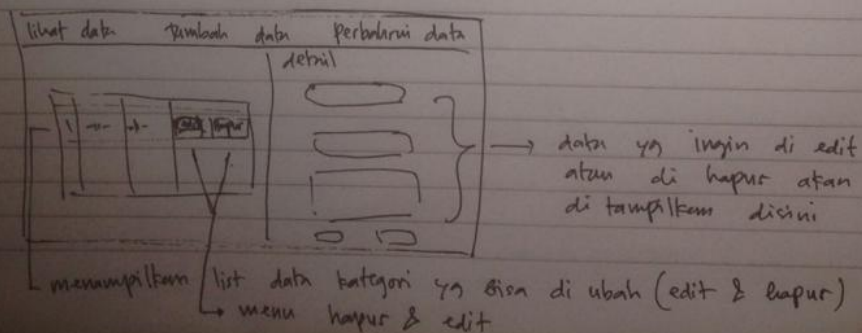 lihat data tambah data perbaharui data
detail
edit hapus
data yg ingin di edit
atau di hapus akan
di tampilkan disini
menampilkan list data kategori yg bisa di ubah (edit & hapus)
menu hapus & edit